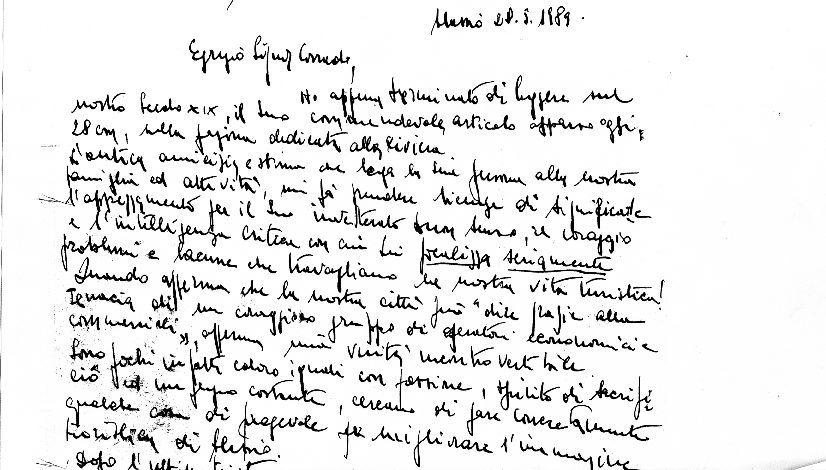 Alassio 28.5.1989.
Egregio Signor Corrado,
Ho appena terminato di leggere sul
nostro Secolo XIX, il Suo commendevole articolo apparso oggi,
28 cm, sulla pagina dedicata alla Riviera
L'antica amicizia e stima che lega la Sua persona alla nostra
famiglia ed attività, mi fà prendere licenza di significarle
l'apprezzamento per il Suo inveterato buon senso, il coraggio
e l'intelligenza critica con cui Lei focalizza seriamente
problemi e lacune che travagliano la nostra vita turistica!
Quando afferma che la nostra città può "dire grazie alla
tenacia di un coraggioso gruppo di operatori economici e
commerciali", afferma una verità incontrovertibile
Sono pochi infatti coloro i quali con passione, spirito di sacrifi=
cio ed impegno costante, cercano di fare concretamente
qualche cosa di pregevole per migliorare l'immagine
turistica di Alassio.
Dopo l'